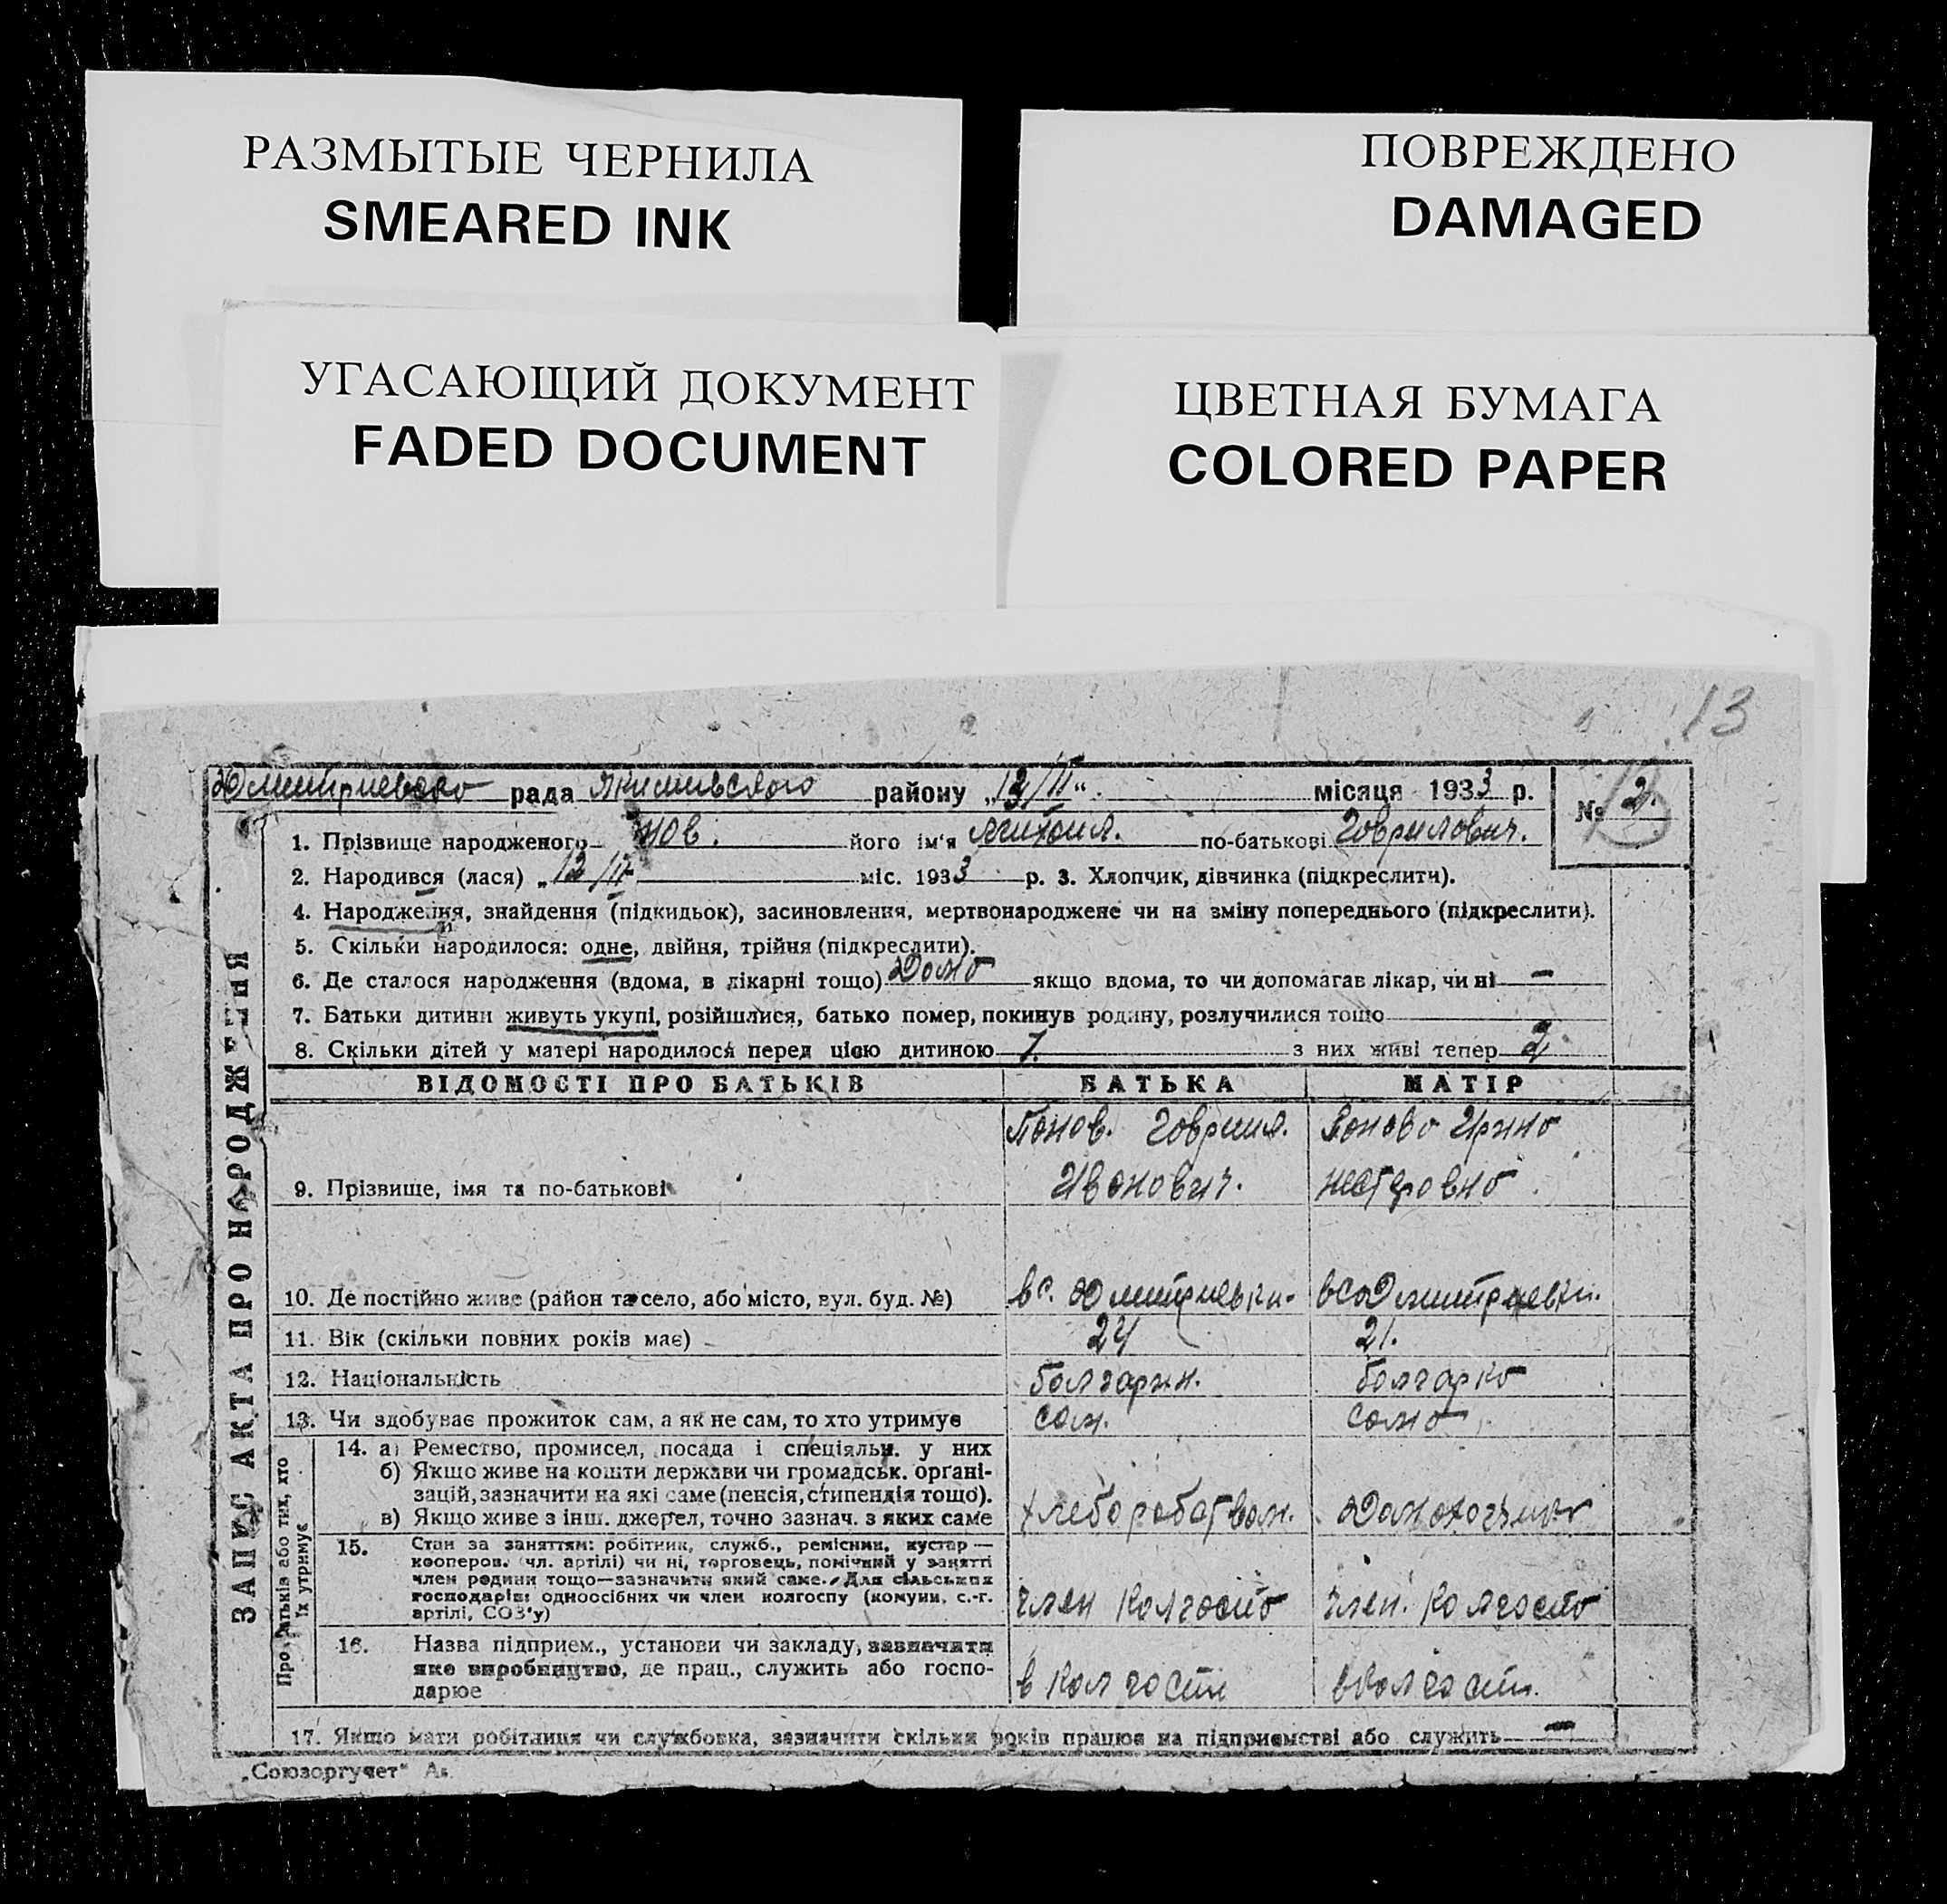 РАЗМЫТЫЕ ЧЕРНИЛА
SMEARED INK
ПОВРЕЖДЕНО
DAMAGED
УГАСАЮЩИЙ ДОКУМЕНТ
FADED DOCUMENT
ЦВЕТНАЯ БУМАГА
COLORED PAPER
13
рада району „12/II“ місяця 1933 р. № 2.
1. Прізвище народженого його ім'я Михаил. по-батькові Гаврилович.
2. Народився (лася) „12/II міс. 1933 р. 3. Хлопчик, дівчинка (підкреслити).
4. Народження, знайдення (підкидьок), засиновлення, мертвонароджене чи на зміну попереднього (підкреслити).
5. Скільки народилося: одне, двійня, трійня (підкреслити).
6. Де сталося народження (вдома, в лікарні тощо) Дома якщо вдома, то чи допомагав лікар, чи ні —
7. Батьки дитини живуть укупі, розійшлися, батько помер, покинув родину, розлучилися тощо
8. Скільки дітей у матері народилося перед цією дитиною з них живі тепер 2
ЗАПИС АКТА ПРО НАРОДЖЕННЯ
ВІДОМОСТІ ПРО БАТЬКІВ БАТЬКА МАТІР
9. Прізвище, імя та по-батькові
Гаврил. Ивонович.
нестеровна
10. Де постійно живе (район та село, або місто, вул. буд. №) в с. Дмитриевки. в с Дмитриевки.
11. Вік (скільки повних років має) 24 21.
12. Національність болгарин. болгарка
13. Чи здобуває прожиток сам, а як не сам, то хто утримує сам. сама
Про батьків або тих, хто їх утримує
14. а) Ремество, промисел, посада і спеціяльн. у них
б) Якщо живе на кошти держави чи громадськ. органі-
зацій, зазначити на які саме (пенсія, стипендія тощо).
в) Якщо живе з інш. джерел, точно зазнач. з яких саме
15. Стан за заняттям: робітник, служб., ремісник, кустар —
кооперов. (чл. артілі) чи ні, торговець, помічний у занятті
член родини тощо—зазначити який саме. Для сільських
господарів: одноосібних чи член колгоспу (комуни, с.-г.
артілі, СОЗ'у)
член колгоспа член. колгоспа
16. Назва підприєм., установи чи закладу, зазначити
яке виробництво, де прац., служить або госпо-
дарює
в колгоспи в колгоспи.
17. Якщо мати робітниця чи службовка, зазначити скільки років працює на підприємстві або служить —
„Союзоргучет“